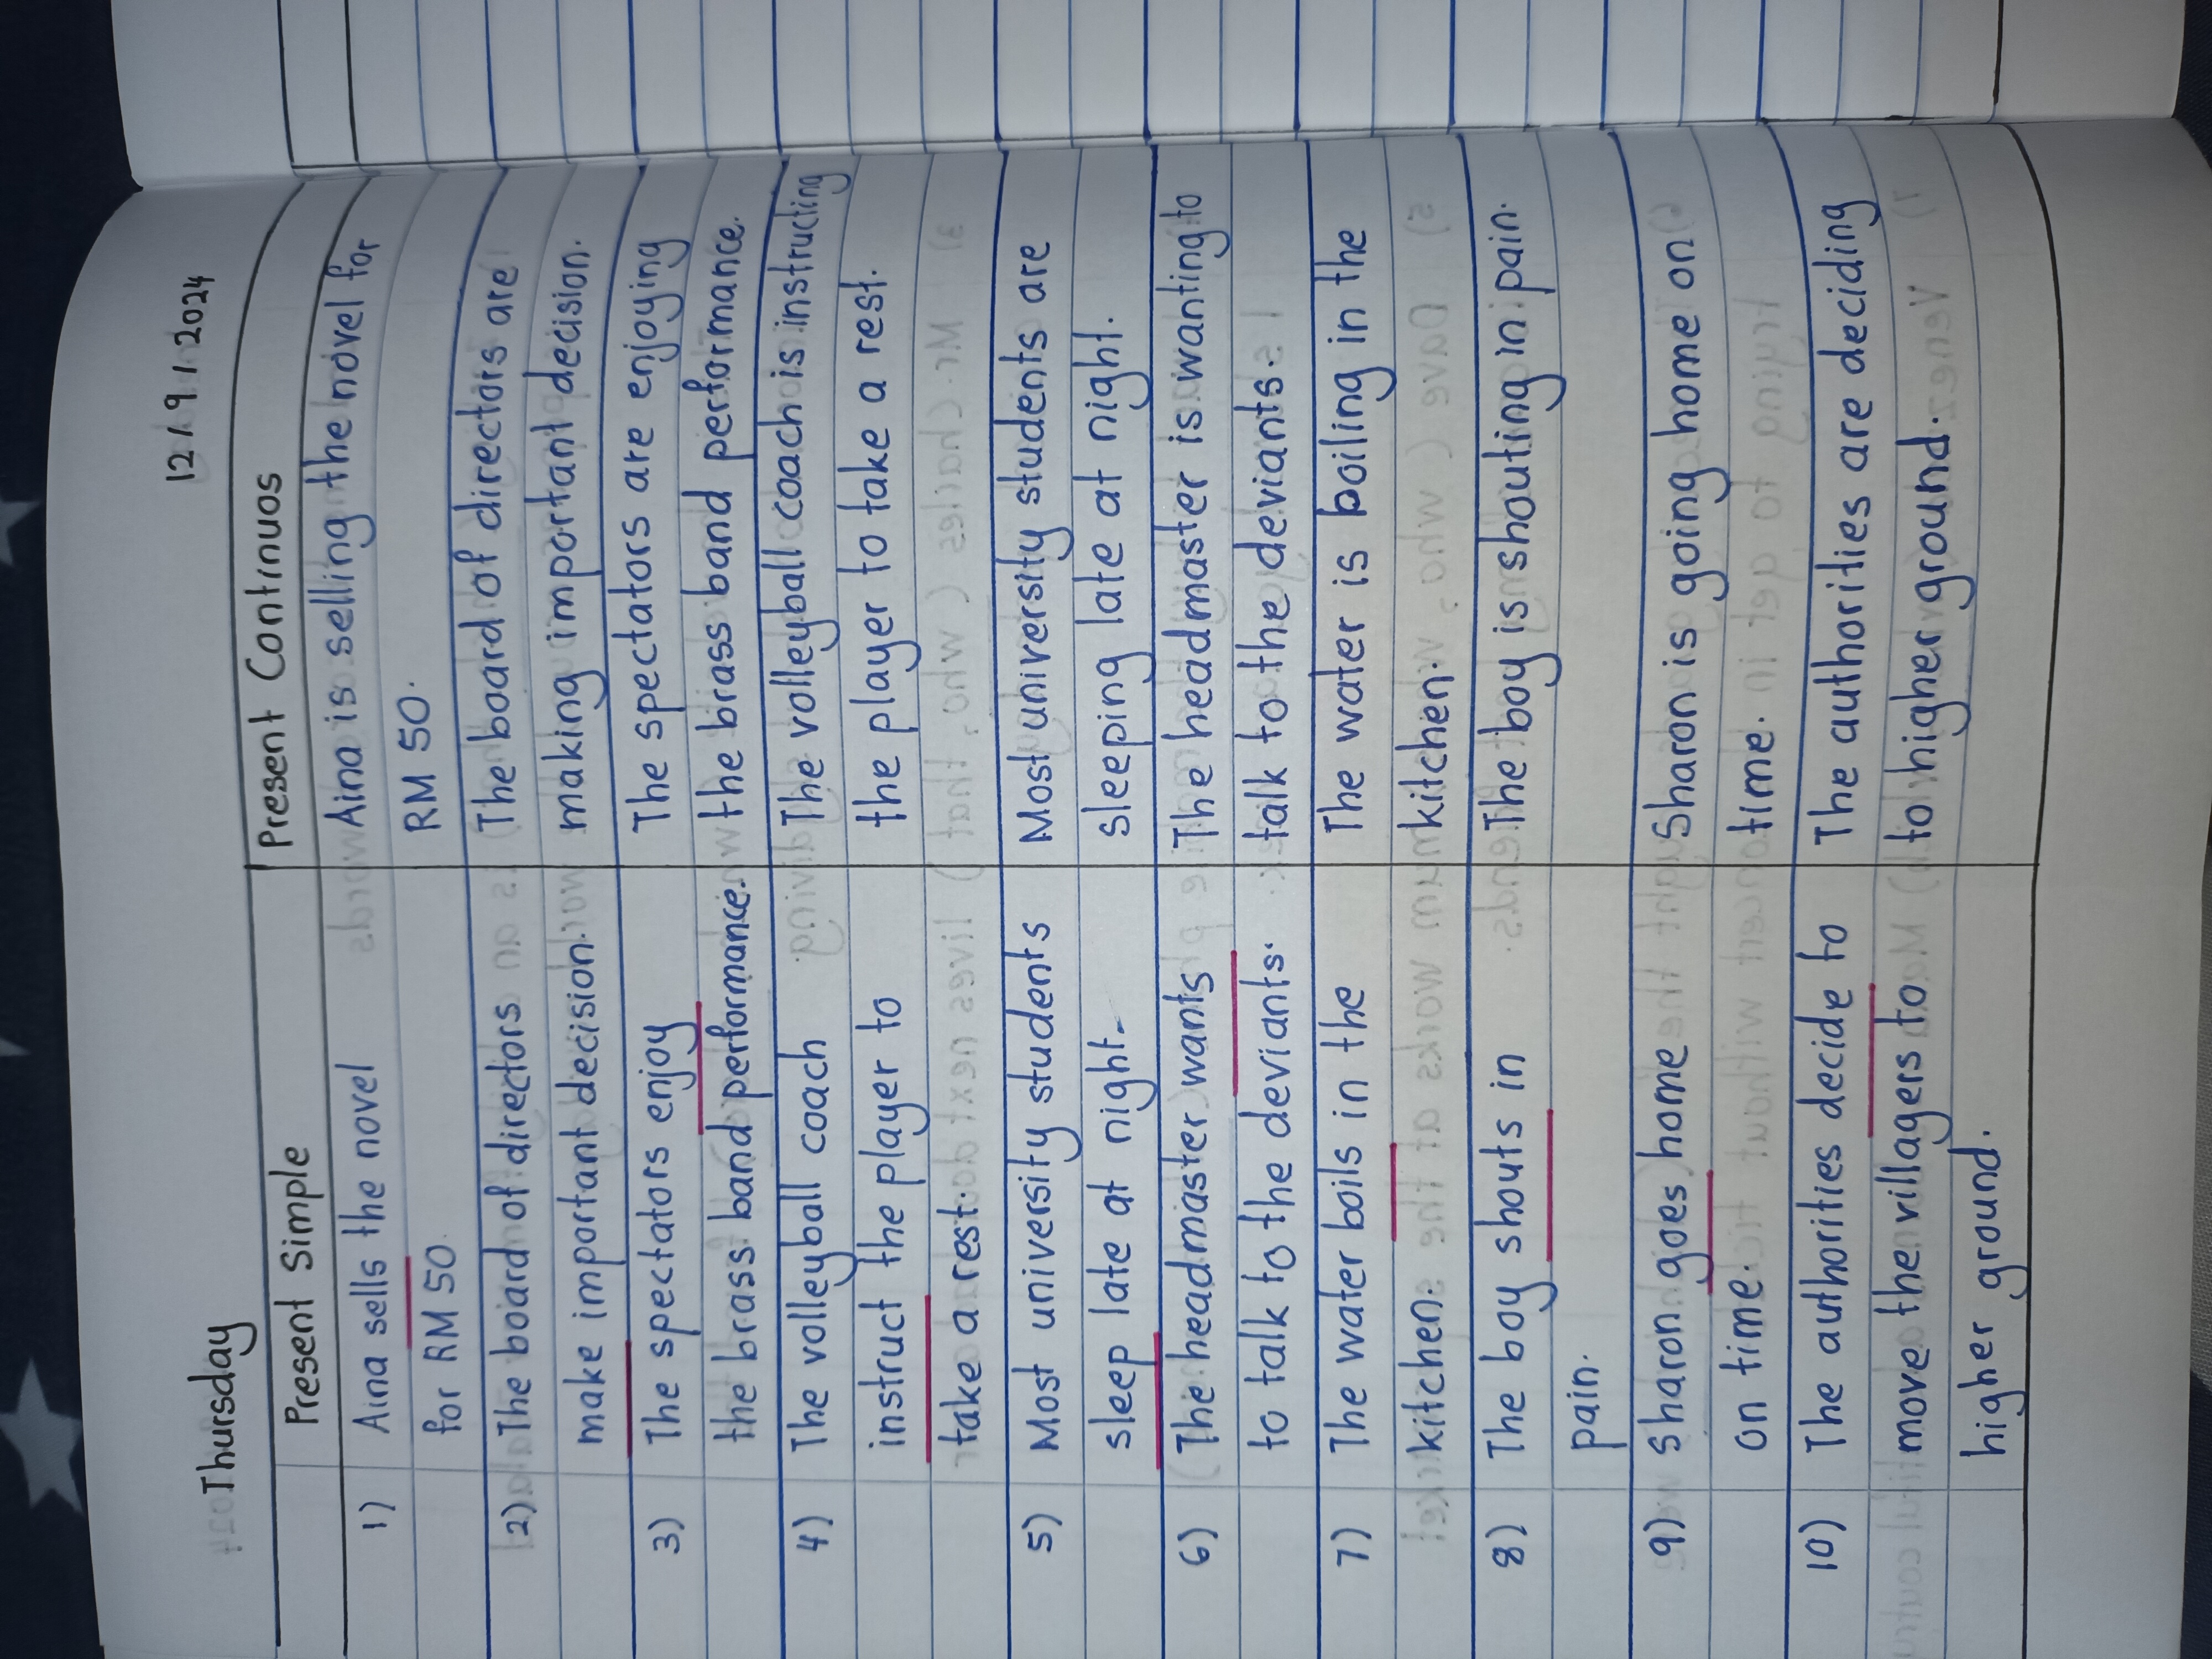 Thursday 12.9.2024
Present Simple Present Continuos
1) Aina sells the novel Aina is selling the novel for
for RM 50. RM 50.
2) The board of directors The board of directors are
make important decision. making important decision.
3) The spectators enjoy The spectators are enjoying
the brass band performance. the brass band performance.
4) The volleyball coach The volleyball coach is instructing
instruct the player to the player to take a rest.
take a rest.
5) Most university students Most university students are
sleep late at night. sleeping late at night.
6) The headmaster wants The headmaster is wanting to
to talk to the deviants. talk to the deviants.
7) The water boils in the The water is boiling in the
kitchen. kitchen.
8) The boy shouts in The boy is shouting in pain.
pain.
9) Sharon goes home Sharon is going home on
on time. time.
10) The authorities decide to The authorities are deciding
move the villagers to to higher ground.
higher ground.